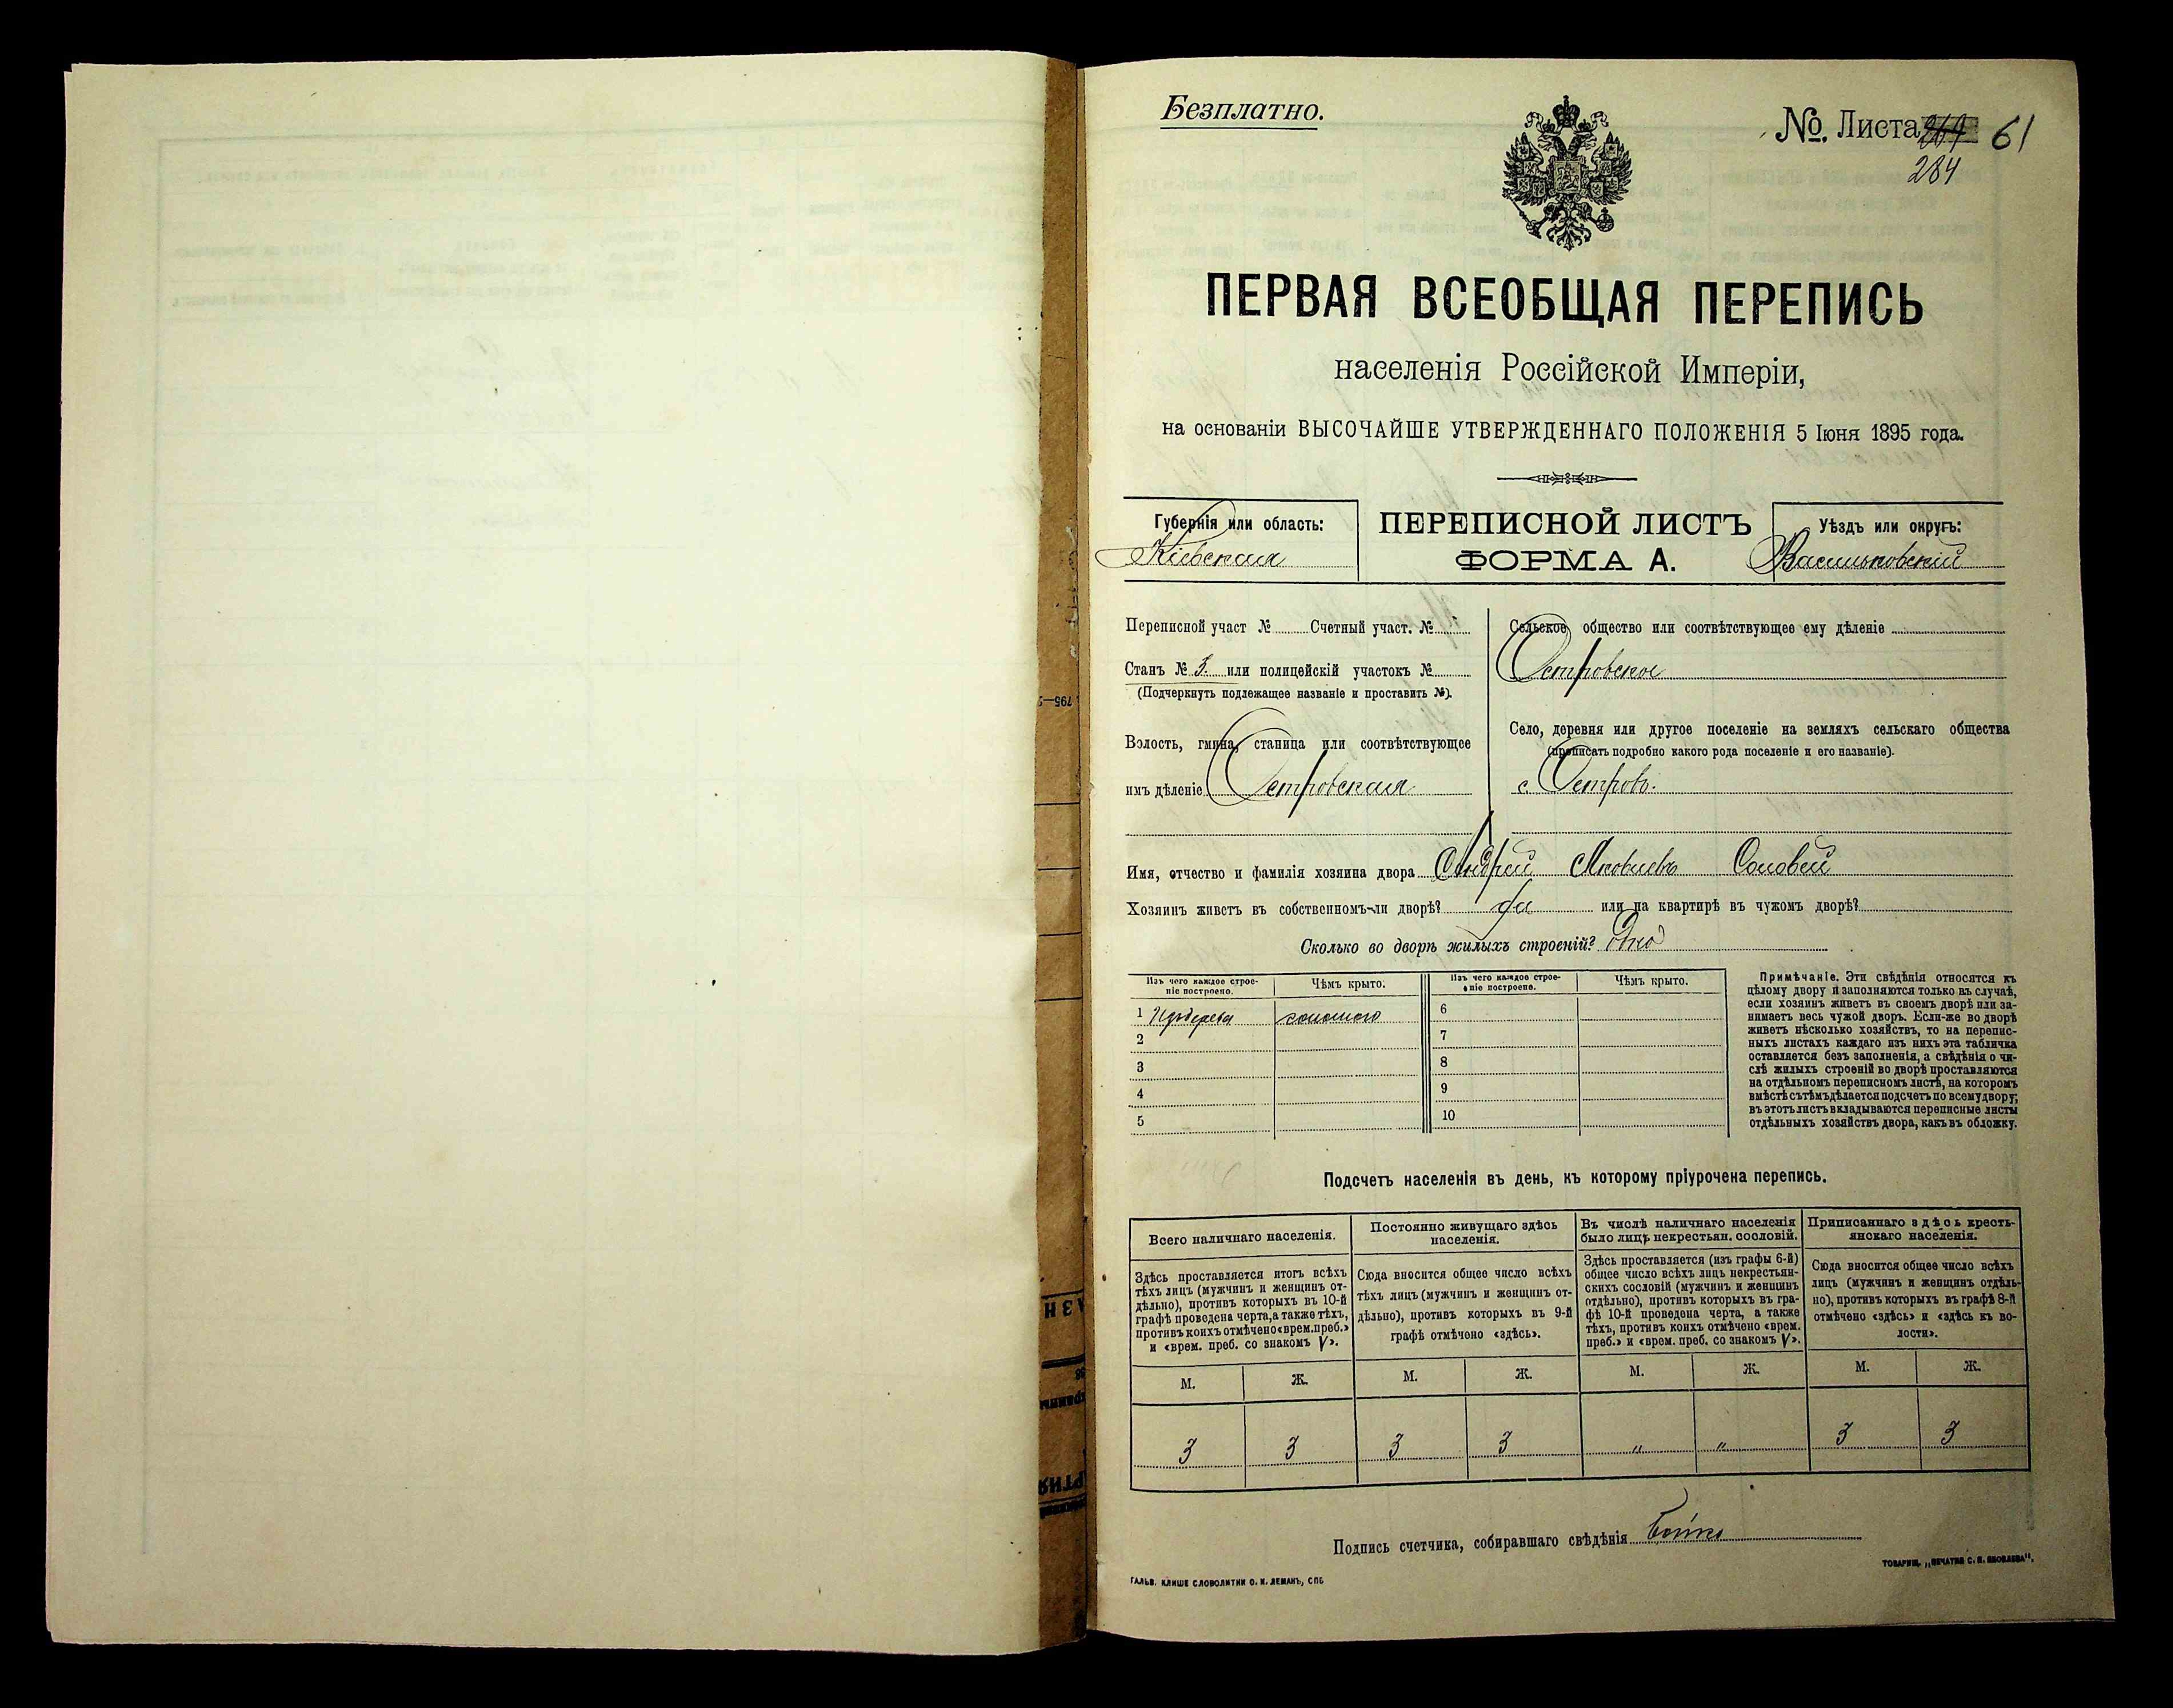 Безплатно.
№. Листа 61
284
ПЕРВАЯ ВСЕОБЩАЯ ПЕРЕПИСЬ
населенія Россійской Имперіи,
на основаніи ВЫСОЧАЙШЕ УТВЕРЖДЕННАГО ПОЛОЖЕНІЯ 5 Іюня 1895 года.
Губернія или область:
Кіевская
ПЕРЕПИСНОЙ ЛИСТЪ
ФОРМА А.
Уѣздъ или округъ:
Васильковскій
Переписной участ № Счетный участ. №
Станъ № 3. или полицейскій участокъ №
(Подчеркнуть подлежащее названіе и проставить №).
Волость, гмина, станица или соотвѣтствующее
имъ дѣленіе Островская
Сельское общество или соотвѣтствующее ему дѣленіе
Островское
Село, деревня или другое поселеніе на земляхъ сельскаго общества
(прописать подробно какого рода поселеніе и его названіе).
с. Островъ.
Имя, отчество и фамилія хозяина двора Андрей Яковлевъ Соловей
Хозяинъ живетъ въ собственномъ-ли дворѣ? да или на квартирѣ въ чужомъ дворѣ?
Сколько во дворѣ жилыхъ строеній? одно
Изъ чего каждое строе-
ніе построено.
Чѣмъ крыто.
Изъ чего каждое строе-
ніе построено.
Чѣмъ крыто.
1 Изъ дерева соломою
2
3
4
5
6
7
8
9
10
Примѣчаніе. Эти свѣдѣнія относятся къ
цѣлому двору и заполняются только въ случаѣ,
если хозяинъ живетъ въ своемъ дворѣ или за-
нимаетъ весь чужой дворъ. Если-же во дворѣ
живетъ нѣсколько хозяйствъ, то на перепис-
ныхъ листахъ каждаго изъ нихъ эта табличка
оставляется безъ заполненія, а свѣдѣнія о чи-
слѣ жилыхъ строеній во дворѣ проставляются
на отдѣльномъ переписномъ листѣ, на которомъ
вмѣстѣ съ тѣмъ дѣлается подсчетъ по всему двору;
въ этотъ листъ вкладываются переписные листы
отдѣльныхъ хозяйствъ двора, какъ въ обложку.
Подсчетъ населенія въ день, къ которому пріурочена перепись.
Всего наличнаго населенія.
Здѣсь проставляется итогъ всѣхъ
тѣхъ лицъ (мужчинъ и женщинъ от-
дѣльно), противъ которыхъ въ 10-й
графѣ проведена черта, а также тѣхъ,
противъ коихъ отмѣчено «врем. преб.»
и «врем. преб. со знакомъ V».
М. Ж.
3 3
Постоянно живущаго здѣсь
населенія.
Сюда вносится общее число всѣхъ
тѣхъ лицъ (мужчинъ и женщинъ от-
дѣльно), противъ которыхъ въ 9-й
графѣ отмѣчено «здѣсь».
М. Ж.
3 3
Въ числѣ наличнаго населенія
было лицъ некрестьян. сословій.
Здѣсь проставляется (изъ графы 6-й)
общее число всѣхъ лицъ некрестьян-
скихъ сословій (мужчинъ и женщинъ
отдѣльно), противъ которыхъ въ гра-
фѣ 10-й проведена черта, а также
тѣхъ, противъ коихъ отмѣчено «врем.
преб.» и «врем. преб. со знакомъ V».
М. Ж.
" "
Приписаннаго здѣсь кресть-
янскаго населенія.
Сюда вносится общее число всѣхъ
лицъ (мужчинъ и женщинъ отдѣль-
но), противъ которыхъ въ графѣ 8-й
отмѣчено «здѣсь» и «здѣсь къ во-
лости».
М. Ж.
3 3
Подпись счетчика, собиравшаго свѣдѣнія Бойко
ГАЛЬВ. КЛИШЕ СЛОВОЛИТНИ О. И. ЛЕМАНЪ, СПБ
ТОВАРИЩ. „ПЕЧАТНЯ С. П. ЯКОВЛЕВА".